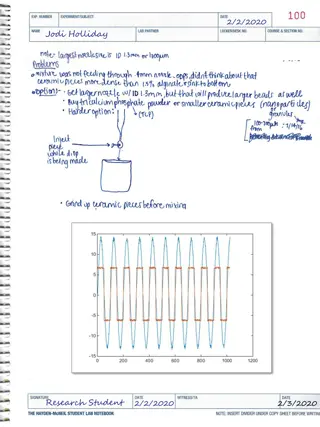 EXP. NUMBER
EXPERIMENT/SUBJECT
DATE
2/2/2020
100
NAME
Jodi Holliday
LAB PARTNER
LOCKER/DESK NO.
COURSE & SECTION NO.
note: largest nozzle size is ID 1.3mm or 1300µm
Problems
mixture was not feeding through 1mm nozzle. oops, didn't think about that
ceramic pieces more dense than 1.5% alginate & sink to bottom
options: - Get larger nozzle w/ ID 1.3mm, but that will produce larger beads as well
• Buy tricalcium phosphate powder or smaller ceramic pieces (nanoparticles)
(TCP)
granules
• Harder option:
from
Inject
piece
while drop
is being made
• Grind up ceramic pieces before mixing
15
10
5
0
-5
-10
-15
0
200
400
600
800
1000
1200
SIGNATURE
Research Student
DATE
2/2/2020
WITNESS/TA
DATE
2/3/2020
THE HAYDEN-McNEIL STUDENT LAB NOTEBOOK
NOTE: INSERT DIVIDER UNDER COPY SHEET BEFORE WRITING